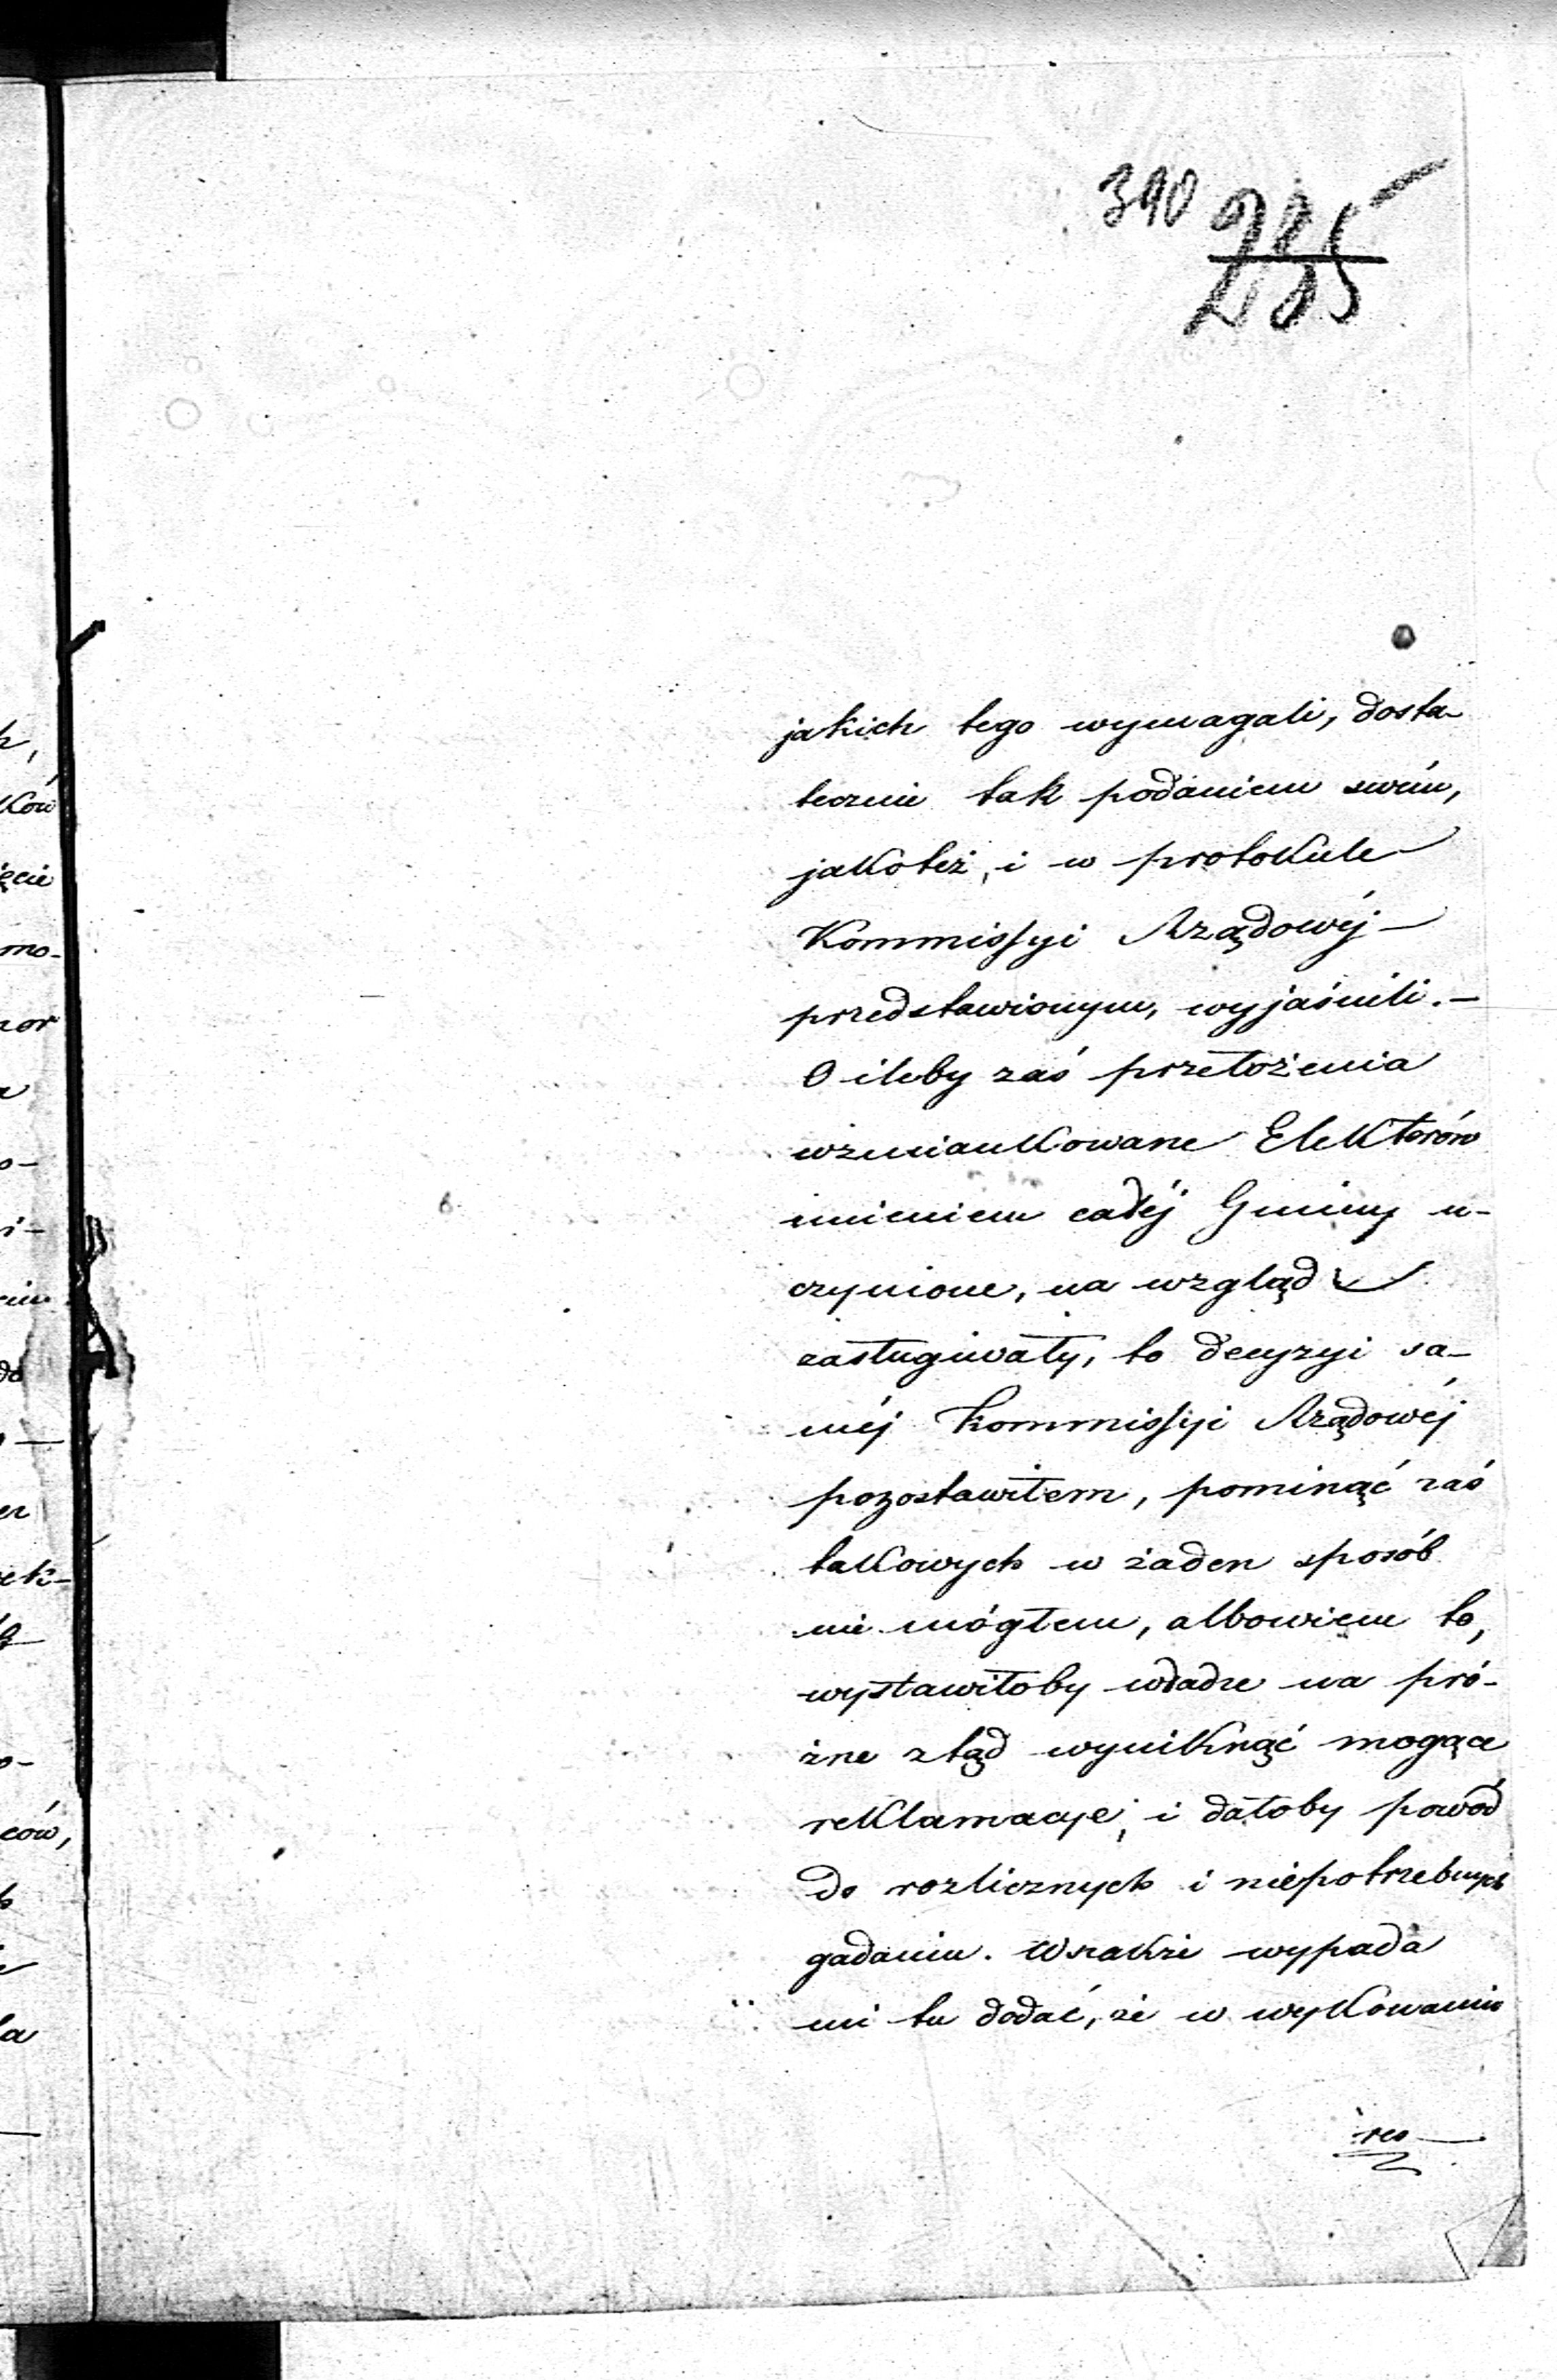 390 285
jakich tego wymagali, dosta-
tecznie tak podaniem swém,
jakoteż, i w protokule
Kommissyi Rządowéj –
przedstawionym, wyjaśnili. –
O ileby zaś przełożenia
wzmiankowane Elektorów
imieniem całéj Gminy u-
czynione, na wzgląd
zasługiwały, to decyzyi sa-
méj Kommissyi Rządowéj
pozostawiłem, pominąć zaś
takowych w żaden sposób
nie mógłem, albowiem to,
wystawiłoby władze na pró-
żne ztąd wyniknąć mogące
reklamacye, i dałoby powód
do rozlicznych i niepotrzebnych
gadanin. Wszakże wypada
mi tu dodać, że w wykowaniu
res –
ków
ęcie
mo-
nor
o-
i-
do
ek-
o-
ców,